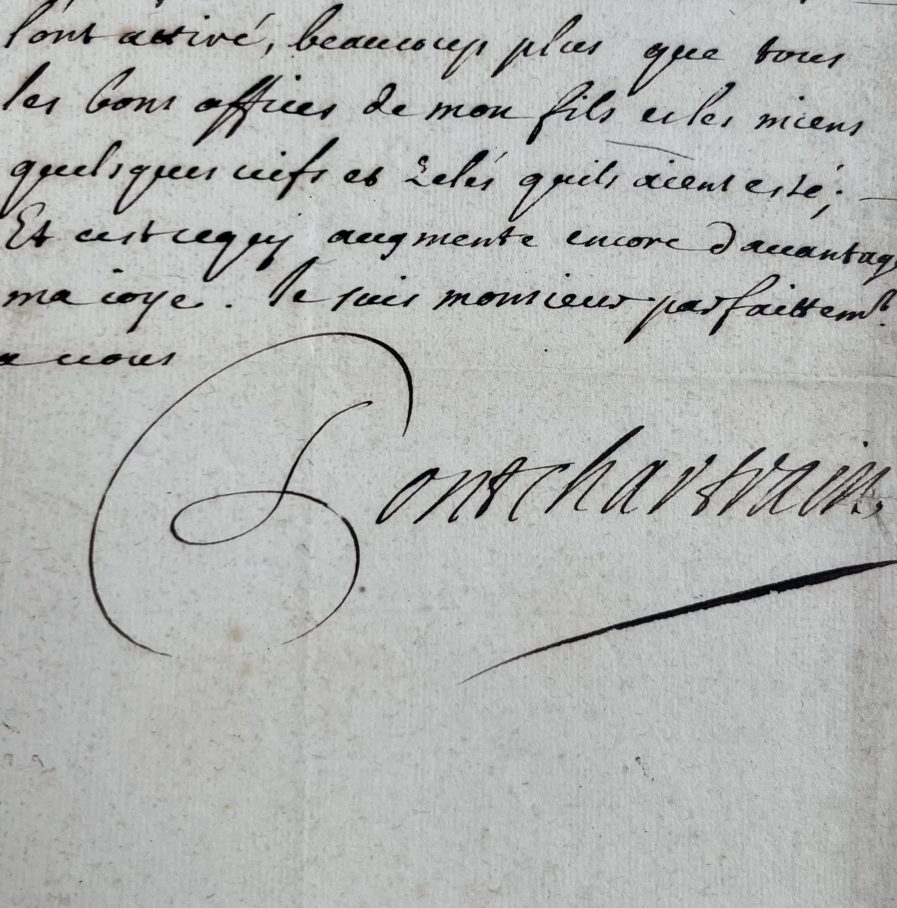 l'ont attiré, beaucoup plus que tous
les bons offices de mon fils et les miens
quelsques vifs et zelés qu'ils aient esté;
Et c'est ce qui augmente encore davantage
ma joye. Je suis monsieur parfaittemt.
a vous
Pontchartrain.